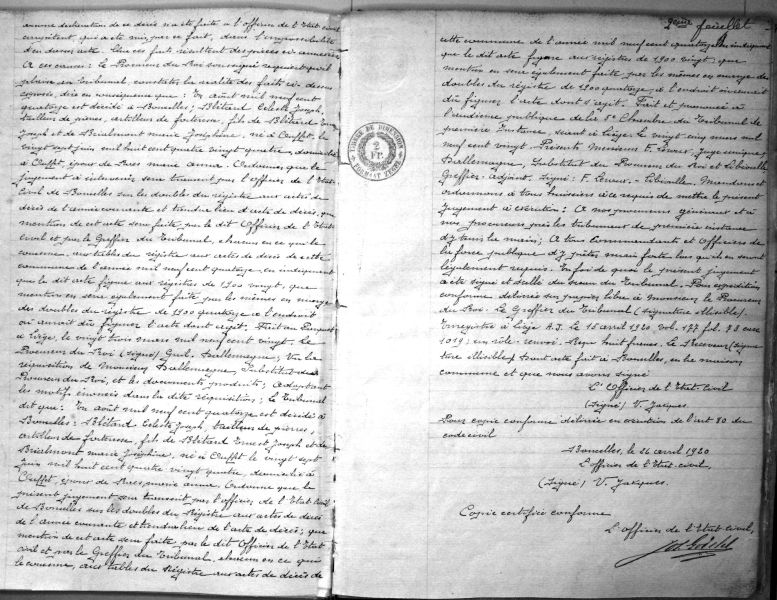 aucune déclaration de ce décès n'a été faite à l'officier de l'Etat civil
compétent, qui a été mis, par ce fait, dans l'impossibilité
d'en dresser acte. Que ces faits résultent des pièces ci-annexées
A ces causes: Le Procureur du Roi soussigné requiert qu'il
plaise au Tribunal, constater la réalité des faits ci-dessus
exposés, dire en conséquence que: En août mil neuf cent
quatorze est décédé à Boncelles; Blétard Celeste Joseph,
tailleur de pierres, artilleur de forteresse, fils de Blétard Ernest
Joseph et de Brialmont Marie Joséphine, né à Ouffet, le
vingt sept juin mil huit cent quatre vingt quatre, domicilié
à Ouffet, époux de Marie Anne. Ordonner que le
jugement à intervenir sera transmis par l'officier de l'Etat
Civil de Boncelles sur les doubles du registre aux actes de
décès de l'année courante et tiendra lieu d'acte de décès, que
mention de cet acte sera faite par le dit Officier de l'Etat
civil et par le Greffier du Tribunal, chacun en ce qui le
concerne, aux tables du régistre aux actes de décès de cette
commune de l'année mil neuf cent quatorze, en indiquant
que le dit acte figure aux régistres de 1900 vingt, que
mention en sera également faite par les mêmes en marge
des doubles du régistre de 1900 quatorze à l'endroit
où aurait dû figurer l'acte dont s'agit. Fait au Parquet
à Liège, le vingt trois mars mil neuf cent vingt. Le
Procureur du Roi (signé) Dallemagne; Vu la
réquisition de Monsieur Dallemagne, Substitut du
Procureur du Roi, et les documents produits; Adoptant
les motifs énoncés dans la dite réquisition; Le Tribunal
dit que: En août mil neuf cent quatorze est décédé à
Boncelles: Blétard Celeste Joseph, tailleur de pierres,
artilleur de forteresse, fils de Blétard Ernest Joseph et de
Brialmont Marie Joséphine, né à Ouffet le vingt sept
juin mil huit cent quatre vingt quatre, domicilié à
Ouffet, époux de Marie Anne. Ordonne que le
présent jugement sera transcrit par l'officier de l'Etat Civil
de Boncelles sur les doubles du Registre aux actes de décès
de l'année courante et tiendra lieu de l'acte de décès; que
mention de cet acte sera faite par le dit Officier de l'Etat
civil et par le Greffier du Tribunal, chacun en ce qui
le concerne, aux tables du Régistre aux actes de décès de
2ème feuillet
cette commune de l'année mil neuf cent quatorze, en indiquant
que le dit acte figure aux régistres de 1900 vingt, que
mention en sera également faite par les mêmes en marge des
doubles du régistre de 1900 quatorze, à l'endroit où aurait
dû figurer l'acte dont s'agit. Fait et prononcé à
l'audience publique de la 5e Chambre du Tribunal de
première Instance, séant à Liège. Le vingt cinq mars mil
neuf cent vingt. Présents Messieurs F. Juge unique
Dallemagne, Substitut du Procureur du Roi et Libioulle
Greffier-Adjoint, Signé: F. - Libioulle. Mandons et
ordonnons à tous huissiers à ce requis de mettre le présent
Jugement à exécution: A nos procureurs généraux et à
nos procureurs près les tribunaux de première instance
d'y tenir la main; A tous Commandants et Officiers de
la force publique d'y prêter main forte lorsqu'ils en seront
légalement requis. En foi de quoi le présent jugement
a été signé et scellé du sceau du Tribunal. Pour expédition
conforme délivrée sur papier libre à Monsieur le Procureur
du Roi. Le Greffier du Tribunal (signature illisible)
Enregistré à Liège A.J. Le 15 avril 1920. Vol. 177 fol. 98 case
1019; un rôle: renvoi. Reçu huit francs. Le Receveur (signa-
ture illisible). Dont acte fait à Boncelles, en la maison
commune et que nous avons signé
L'Officier de l'Etat-Civil
(Signé) V. Jacques.
Pour copie conforme délivrée en exécution de l'art 80 du
code civil
Boncelles, le 26 avril 1920
L'officier de l'Etat-civil,
(Signé) V. Jacques.
Copie certifiée conforme
L'Officier de l'Etat Civil,
TIMBRE DE DIMENSION
2
FR.